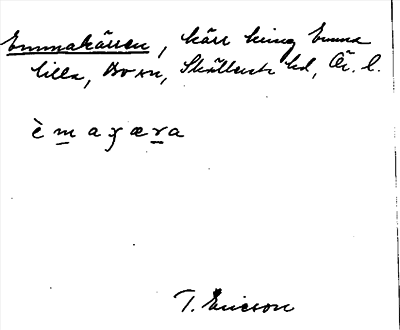 Emmakärren, kärr kring Emma
lilla, Bo sn, Skyllersta hd, Ör. l.
è m a ɣ æ r a
T. Ericson